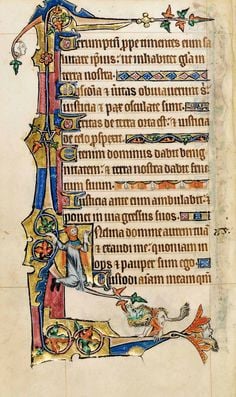 Uerumptn̄ prope timentes eum sa
lutare ipsius: ut inhabitet gl̄a in
terra nostra.
Misc̄dia & ūitas obuiauerunt s
iusticia & pax osculate sunt.
Ueritas de terra orta est: & iusticia
de celo prospexit.
Etenim dominus dabit benig
nitatem: & terra nostra dabit fruc
tum suum.
Iusticia ante eum ambulabit: &
ponet in uia gressus suos.
Inclina domine aurem tuam
& exaudi me: quoniam in
ops & pauper sum ego.
Custodi animam meam qm̄